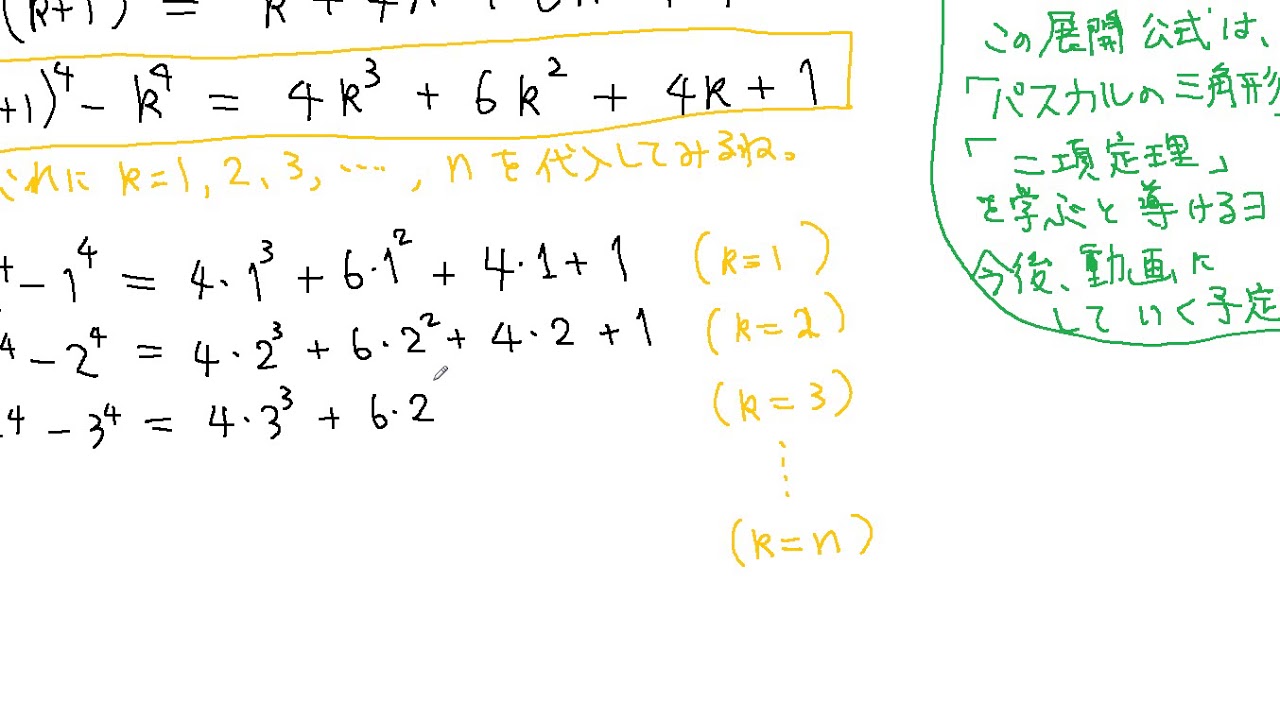 (k+1) = k + 4k
+1)⁴ - k⁴ = 4k³ + 6k² + 4k + 1
これに k=1, 2, 3, ……, n を代入してみるね。
- 1⁴ = 4・1³ + 6・1² + 4・1 + 1 (k=1)
⁴ - 2⁴ = 4・2³ + 6・2² + 4・2 + 1 (k=2)
⁴ - 3⁴ = 4・3³ + 6・2 (k=3)
⋮
(k=n)
この展開公式は、
「パスカルの三角形
「二項定理」
を学ぶと導けるヨ
今後、動画に
していく予定